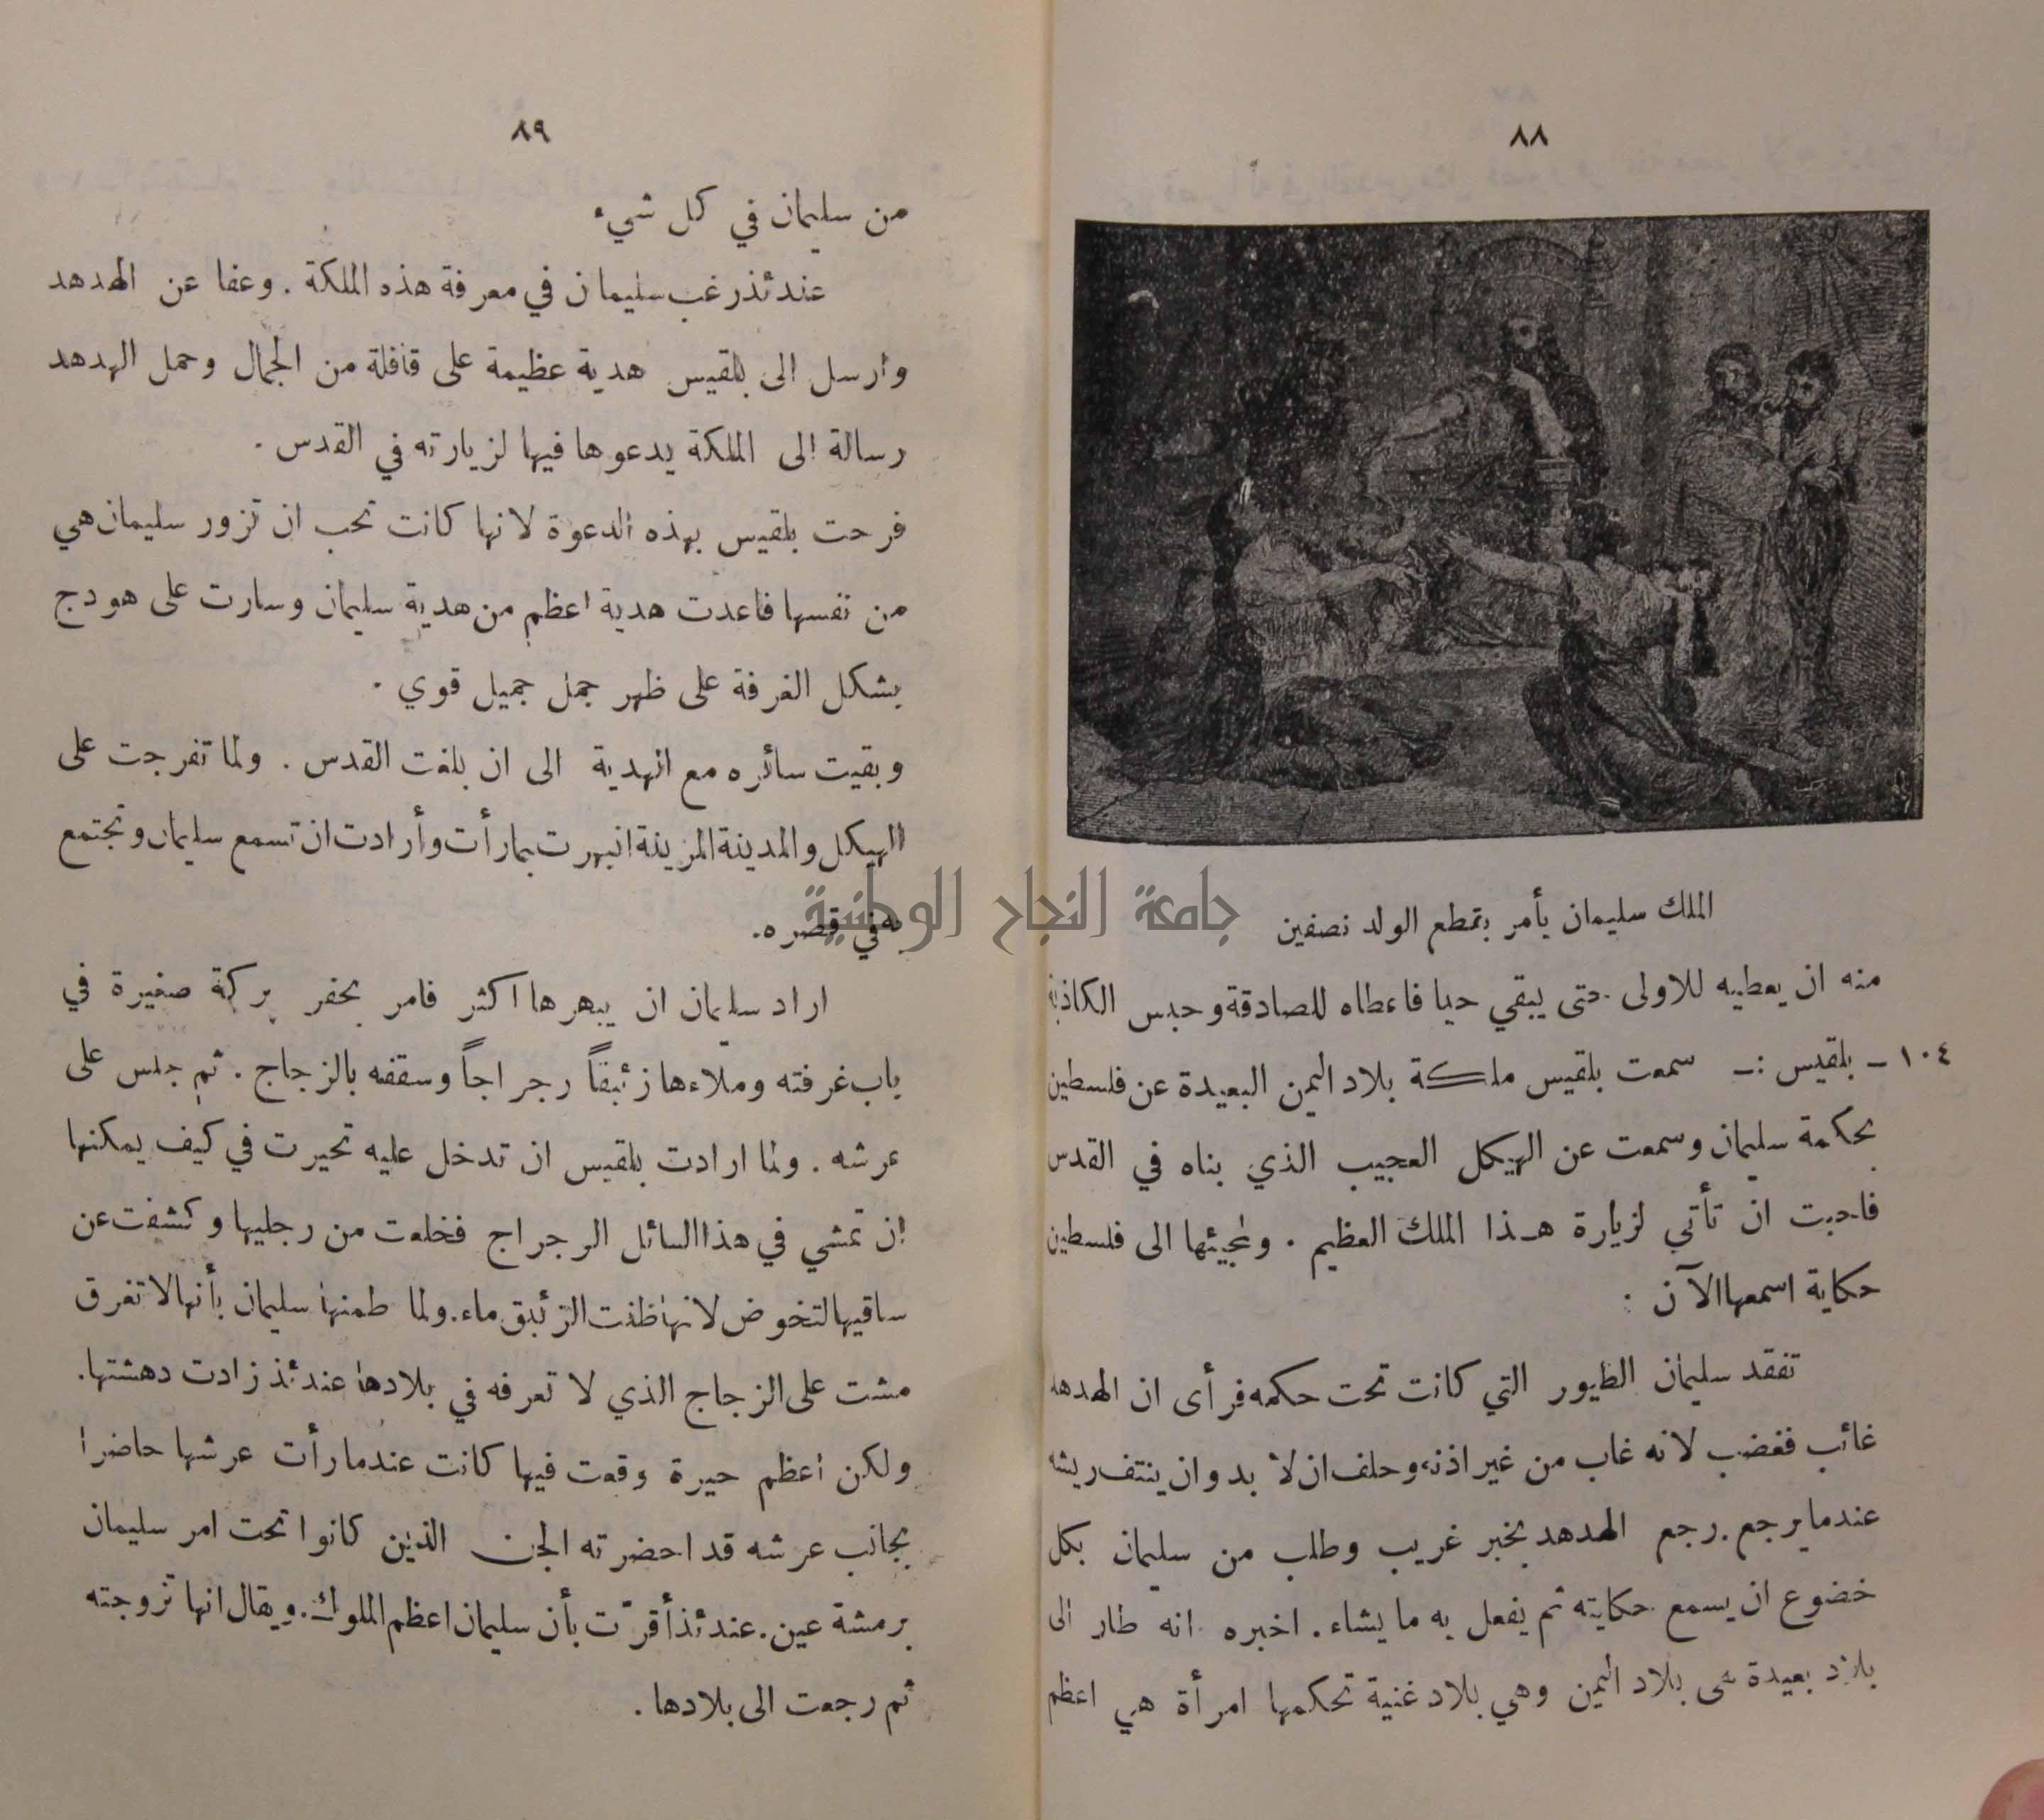 ٨٨
الملك سليمان يأمر بقطع الولد نصفين
منه ان يعطيه للاولى حتى يبقي حيا فاعطاه للصادقة وحبس الكاذبة
١٠٤ - بلقيس :- سمعت بلقيس ملكة بلاد اليمن البعيدة عن فلسطين
بحكمة سليمان وسمعت عن الهيكل العجيب الذي بناه في القدس
فاحبت ان تأتي لزيارة هذا الملك العظيم . ولمجيئها الى فلسطين
حكاية اسمعها الآن :
تفقد سليمان الطيور التي كانت تحت حكمه فرأى ان الهدهد
غائب فغضب لانه غاب من غير اذنه وحلف ان لا بد وان ينتف ريشه
عندما يرجع . رجع الهدهد بخبر غريب وطلب من سليمان بكل
خضوع ان يسمع حكايته ثم يفعل به ما يشاء . اخبره انه طار الى
بلاد بعيدة هي بلاد اليمن وهي بلاد غنية تحكمها امرأة هي اعظم
٨٩
من سليمان في كل شيء
عندئذ رغب سليمان في معرفة هذه الملكة . وعفا عن الهدهد
وارسل الى بلقيس هدية عظيمة على قافلة من الجمال وحمل الهدهد
رسالة الى الملكة يدعوها فيها لزيارته في القدس .
فرحت بلقيس بهذه الدعوة لانها كانت تحب ان تزور سليمان هي
من نفسها فاعدت هدية اعظم من هدية سليمان وسارت على هودج
بشكل الغرفة على ظهر جمل جميل قوي .
وبقيت سائره مع الهدية الى ان بلغت القدس . ولما تفرجت على
الهيكل والمدينة المزينة انبهرت بما رأت وأرادت ان تسمع سليمان وتجتمع
به في قصره .
جامعة النجاح الوطنية
اراد سليمان ان يبهرها اكثر فامر بحفر بركة صغيرة في
باب غرفته وملاءها زئبقاً رجراجاً وسقفه بالزجاج . ثم جلس على
عرشه . ولما ارادت بلقيس ان تدخل عليه تحيرت في كيف يمكنها
ان تمشي في هذا السائل الرجراج فخلعت من رجليها وكشفت عن
ساقيها لتخوض لانها ظنت الزئبق ماء . ولما طمنها سليمان بأنها لا تغرق
مشت على الزجاج الذي لا تعرفه في بلادها عندئذ زادت دهشتها .
ولكن اعظم حيرة وقعت فيها كانت عندما رأت عرشها حاضرا
بجانب عرشه قد احضرته الجن الذين كانوا تحت امر سليمان
برمشة عين . عندئذ أقرّت بأن سليمان اعظم الملوك . ويقال انها تزوجته
ثم رجعت الى بلادها .